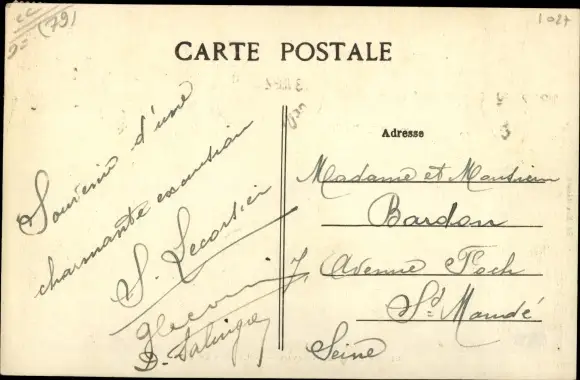 (79)
1027
CARTE POSTALE
Souvenir d'une
charmante excursion
S. Lecorsier
Adresse
Madame et Monsieur
Bardon
7, Avenue Foch
St Mandé
Seine